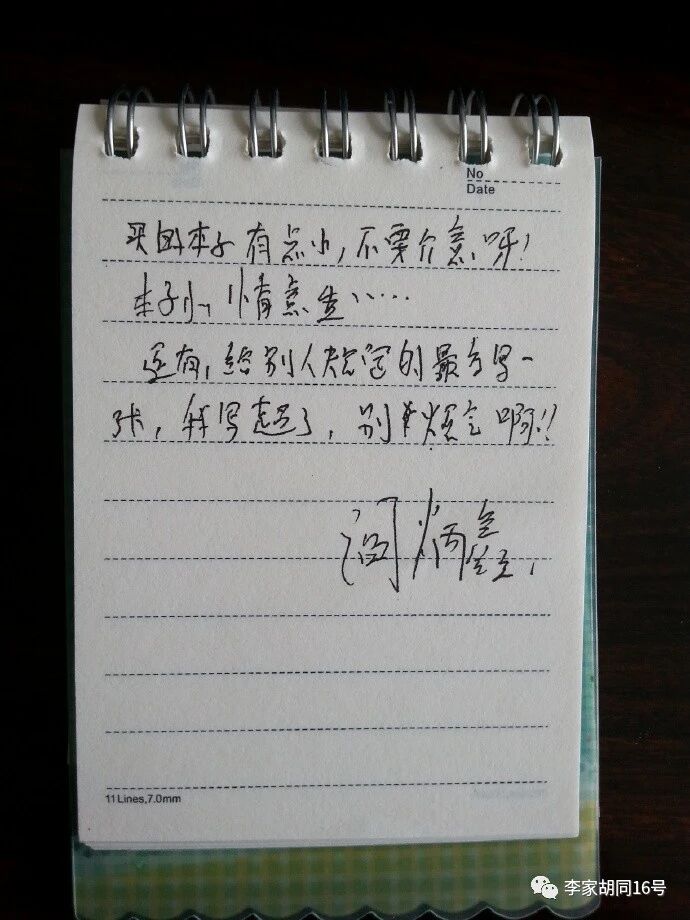 No
Date
买的本子有点小，不要介意呀！
本子小，情意重……
还有，给别人规定的最多写一
张，我写超了，别烦之啊！！
阎炳鑫
11 Lines,7.0mm
李家胡同16号